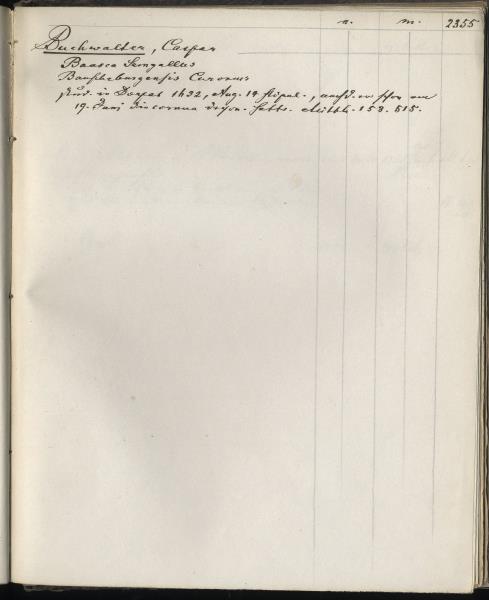 a. m. 2355
Buchwalter, Caspar
Bausca Semgallus
Bauskeburgensis Curonus
stud. in Dorpat 1632, Aug. 14 , nachd. er schon am
19. Juni depon. hatte. Mitth. 153. 515.